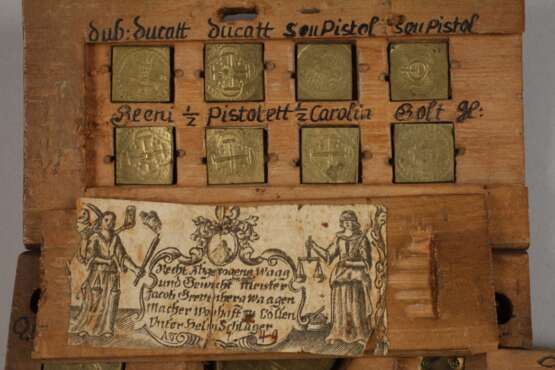 dub: ducatt ducatt souPistol souPistol
Reeni ½ Pistolett ½ Carolin Golt gl:
Recht Abgezogene Waag
und Gewicht meister
Jacob Grevenberg Waagen
macher Wonhaft zu Cöllen
Unter Helm Schläger